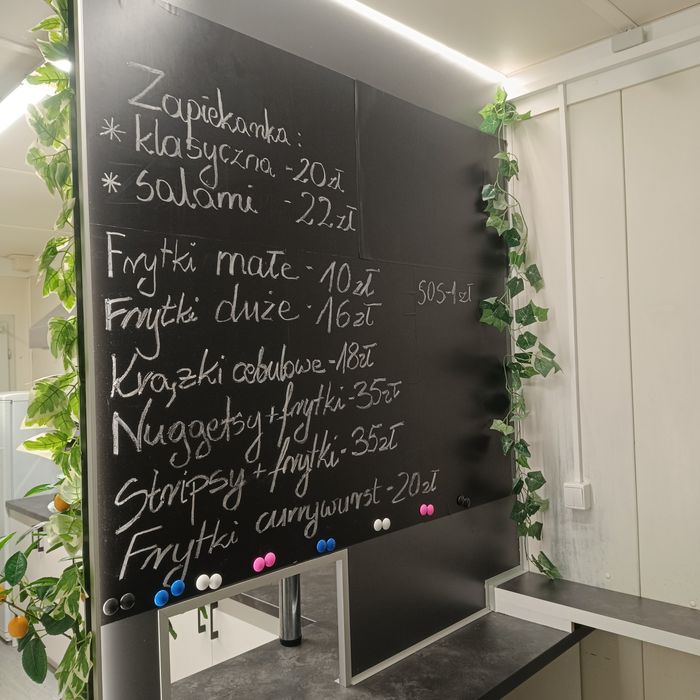 Zapiekanka:
* klasyczna - 20zł
* salami - 22zł
Frytki małe - 10zł
Frytki duże - 16zł
SOS-1zł
Krążki cebulowe - 18zł
Nuggetsy + frytki - 35zł
Stripsy + frytki - 35zł
Frytki currywurst - 20zł